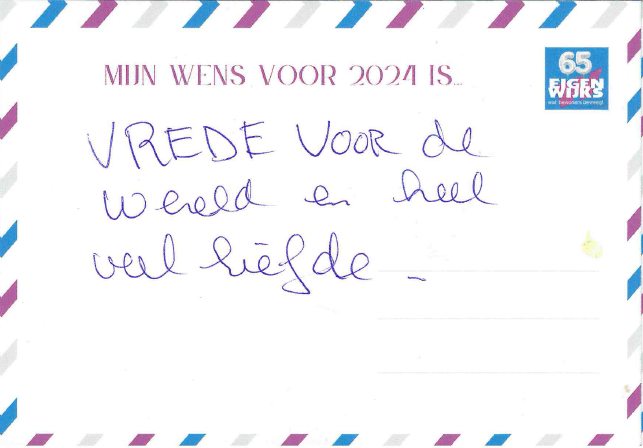 MIJN WENS VOOR 2024 IS...
65
EIGEN
WIJKS
VREDE VOOR de
wereld en heel
veel liefde -